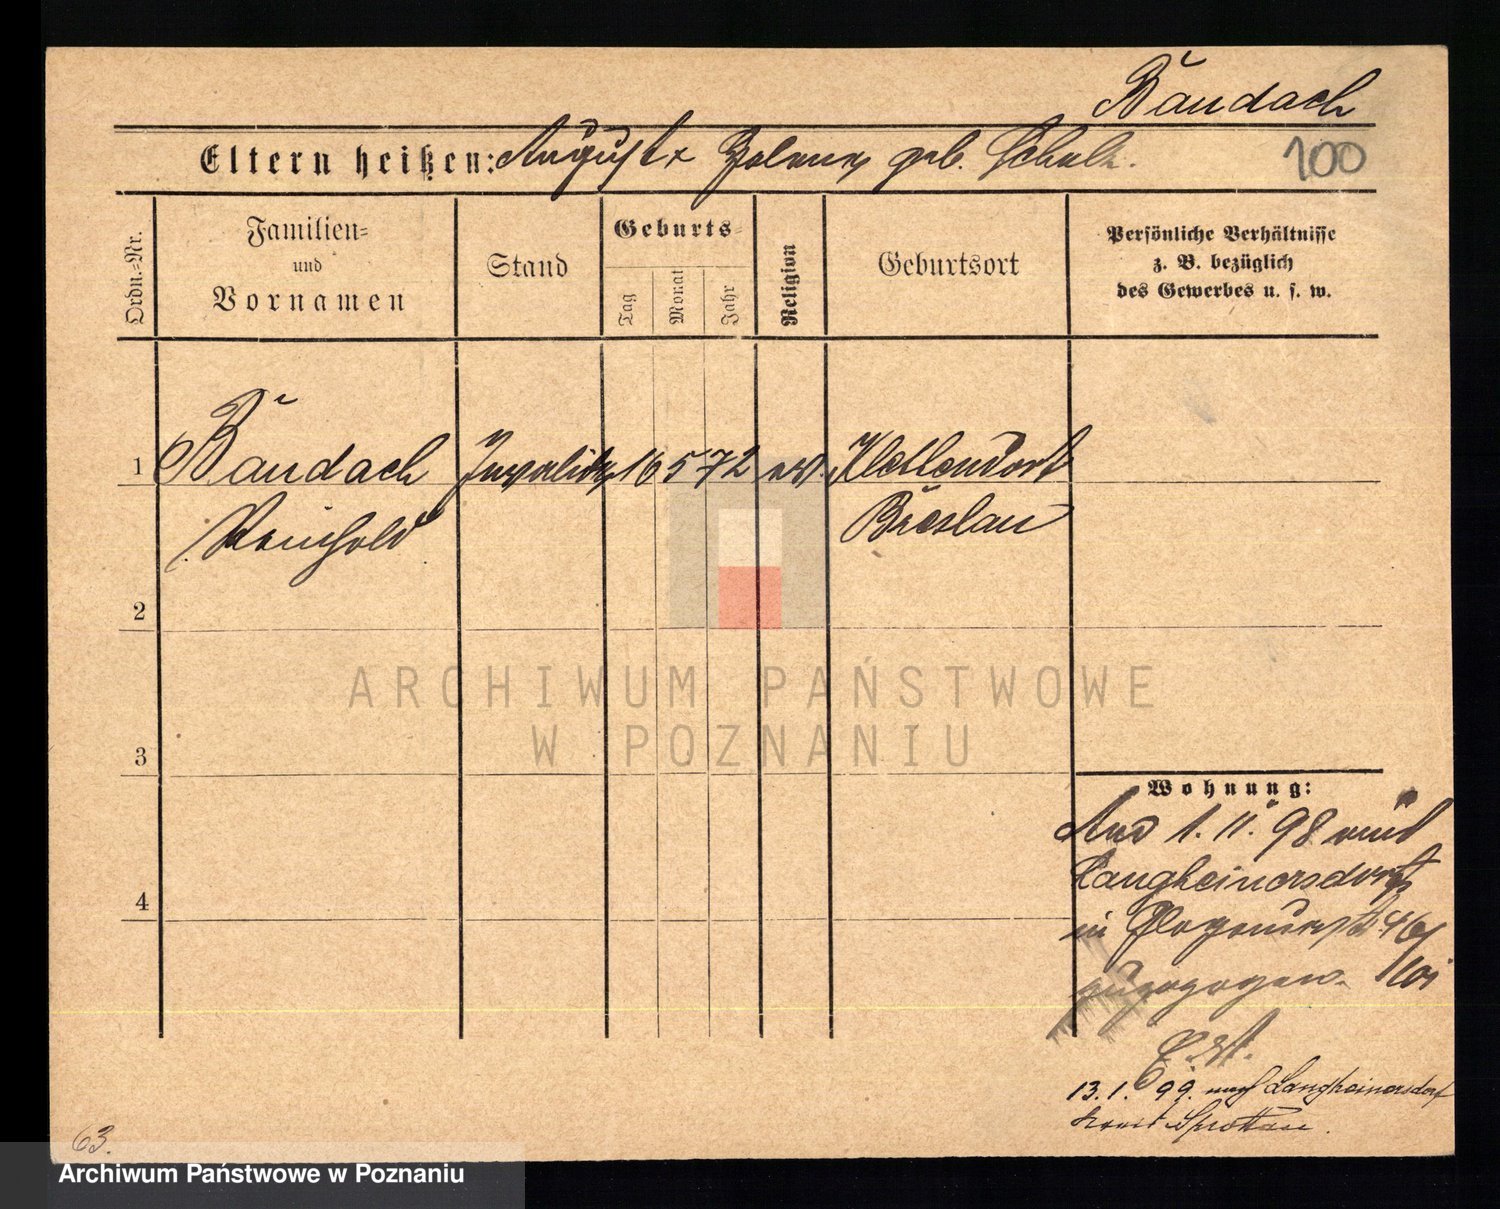 Baudach
Eltern heißen: August x geb. Schulz.
100
Ordn.-Nr.
Familien-
und
Vornamen
Stand
Geburts-
Tag
Monat
Jahr
Religion
Geburtsort
Persönliche Verhältnisse
z. B. bezüglich
des Gewerbes u. s. w.
1
Baudach
Invalide
16
5
72
ev.
Klettendorf
Reinhold
Breslau
2
3
4
Wohnung:
1. 11. 98
Langheinersdorf
in 46
zugezogen.
13. 1. 99. nach Langheinersdorf
Sprottau.
63.
ARCHIWUM PAŃSTWOWE
W POZNANIU
Archiwum Państwowe w Poznaniu